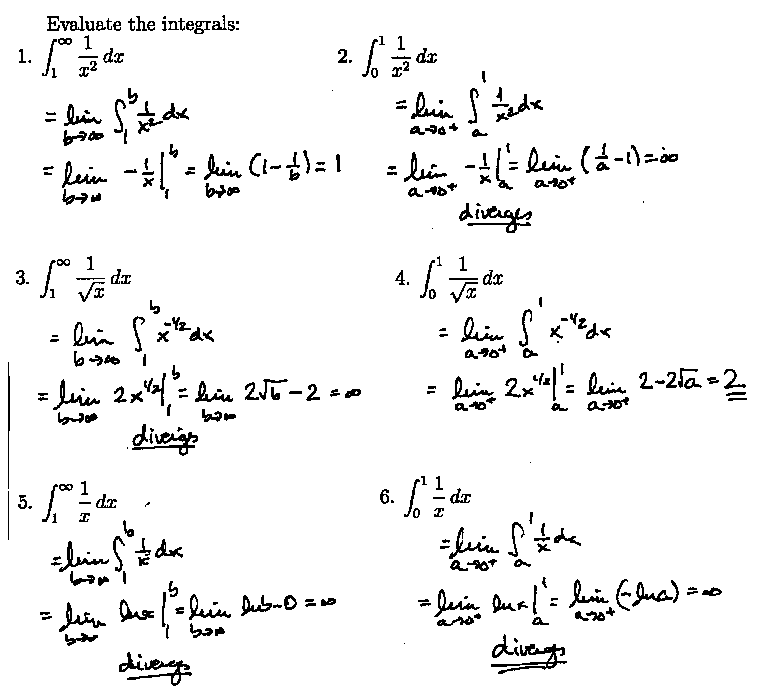 Evaluate the integrals:
1. ∫₁^∞ 1/x² dx
= lim_{b→∞} ∫₁^b 1/x² dx
= lim_{b→∞} -1/x |₁^b = lim_{b→∞} (1 - 1/b) = 1
2. ∫₀^1 1/x² dx
= lim_{a→0⁺} ∫_a^1 1/x² dx
= lim_{a→0⁺} -1/x |_a^1 = lim_{a→0⁺} (1/a - 1) = ∞
diverges
3. ∫₁^∞ 1/√x dx
= lim_{b→∞} ∫₁^b x^{-1/2} dx
= lim_{b→∞} 2x^{1/2} |₁^b = lim_{b→∞} 2√b - 2 = ∞
diverges
4. ∫₀^1 1/√x dx
= lim_{a→0⁺} ∫_a^1 x^{-1/2} dx
= lim_{a→0⁺} 2x^{1/2} |_a^1 = lim_{a→0⁺} 2 - 2√a = 2
5. ∫₁^∞ 1/x dx
= lim_{b→∞} ∫₁^b 1/x dx
= lim_{b→∞} ln x |₁^b = lim_{b→∞} ln b - 0 = ∞
diverges
6. ∫₀^1 1/x dx
= lim_{a→0⁺} ∫_a^1 1/x dx
= lim_{a→0⁺} ln x |_a^1 = lim_{a→0⁺} (-ln a) = ∞
diverges